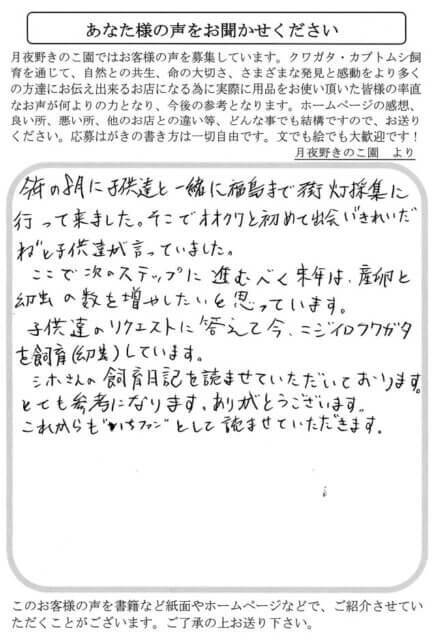 あなた様の声をお聞かせください
月夜野きのこ園ではお客様の声を募集しています。クワガタ・カブトムシ飼
育を通じて、自然との共生、命の大切さ、さまざまな発見と感動をより多く
の方達にお伝え出来るお店になる為に実際に用品をお使い頂いた皆様の率直
なお声が何よりの力となり、今後の参考となります。ホームページの感想、
良い所、悪い所、他のお店との違い等、どんな事でも結構ですので、お送り
ください。応募はがきの書き方は一切自由です。文でも絵でも大歓迎です！
月夜野きのこ園　より
今年の8月に子供達と一緒に福島まで街灯採集に
行って来ました。そこでオオクワと初めて出会いきれいだ
ねと子供達が言っていました。
ここで次のステップに進むべく来年は、産卵と
幼虫の数を増やしたいと思っています。
子供達のリクエストに答えて今、ニジイロクワガタ
を飼育(幼虫)しています。
シホさんの飼育日記を読ませていただいております。
とても参考になります。ありがとうございます。
これからも〝いちファン〟として読ませていただきます。
このお客様の声を書籍など紙面やホームページなどで、ご紹介させてい
ただくことがございます。ご了承の上お送り下さい。